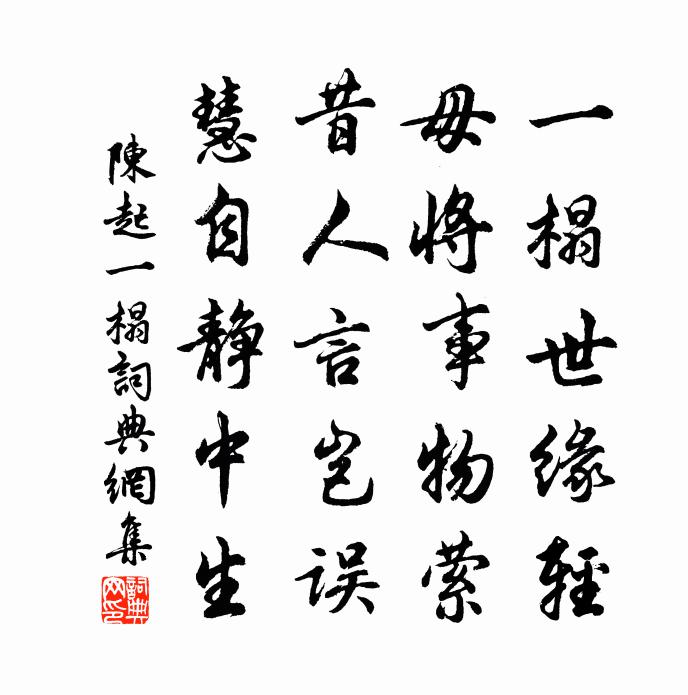 一榻世缘輕
毋將事物縈
昔人言岂误
慧自靜中生
陳起一榻詞典網集
詞典网印